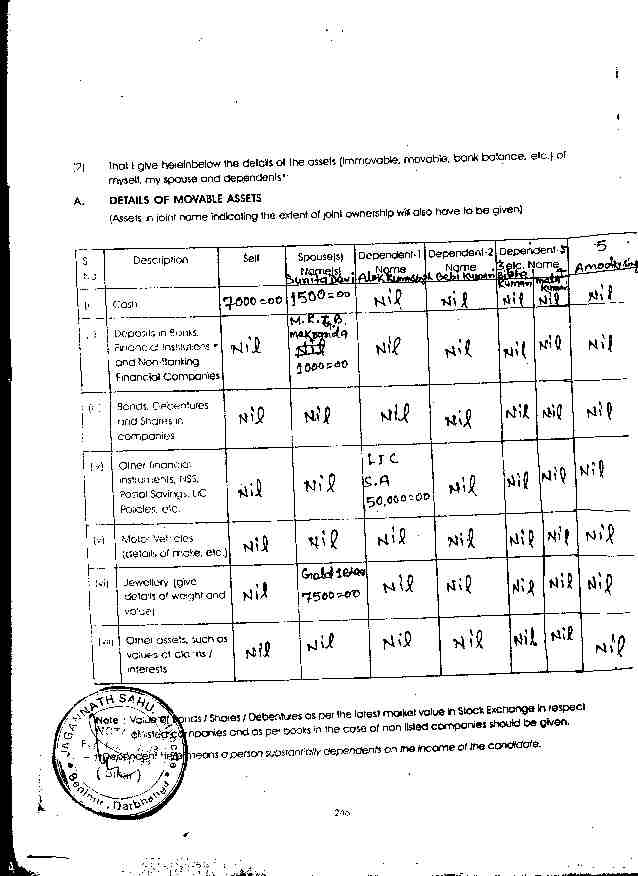 (2) That I give hereinbelow the details of the assets (immovable, movable, bank balance, etc.) of
myself, my spouse and dependents*
A. DETAILS OF MOVABLE ASSETS
(Assets in joint name indicating the extent of joint ownership will also have to be given)
S. No Description Self Spouse(s) Name(s) Dependent-1 Name Dependent-2 Name Dependent-3 etc. Name 5
Sunita Devi
(i) Cash 7000=00 1500=00 Nil Nil Nil Nil Nil
(ii) Deposits in Banks, Nil M.K.G.B. Nil Nil Nil Nil Nil
Financial Institutions Nil
and Non-Banking 1000=00
Financial Companies
(iii) Bonds, Debentures Nil Nil Nil Nil Nil Nil Nil
and Shares in
companies
(iv) Other financial Nil Nil LIC Nil Nil Nil Nil
instruments, NSS, S.A
Postal Savings, LIC 50,000=00
Policies, etc.
(v) Motor Vehicles Nil Nil Nil Nil Nil Nil Nil
(details of make, etc.)
(vi) Jewellery (give Nil Gold Nil Nil Nil Nil Nil
details of weight and 7500=00
value)
(vii) Other assets, such as Nil Nil Nil Nil Nil Nil Nil
values of claims /
interests
Note : Value of Bonds / Shares / Debentures as per the latest market value in Stock Exchange in respect
of listed companies and as per books in the case of non listed companies should be given.
Dependent here means a person substantially dependents on the income of the candidate.
JAGANNATH SAHU
(Bihar)
Benipur, Darbhanga